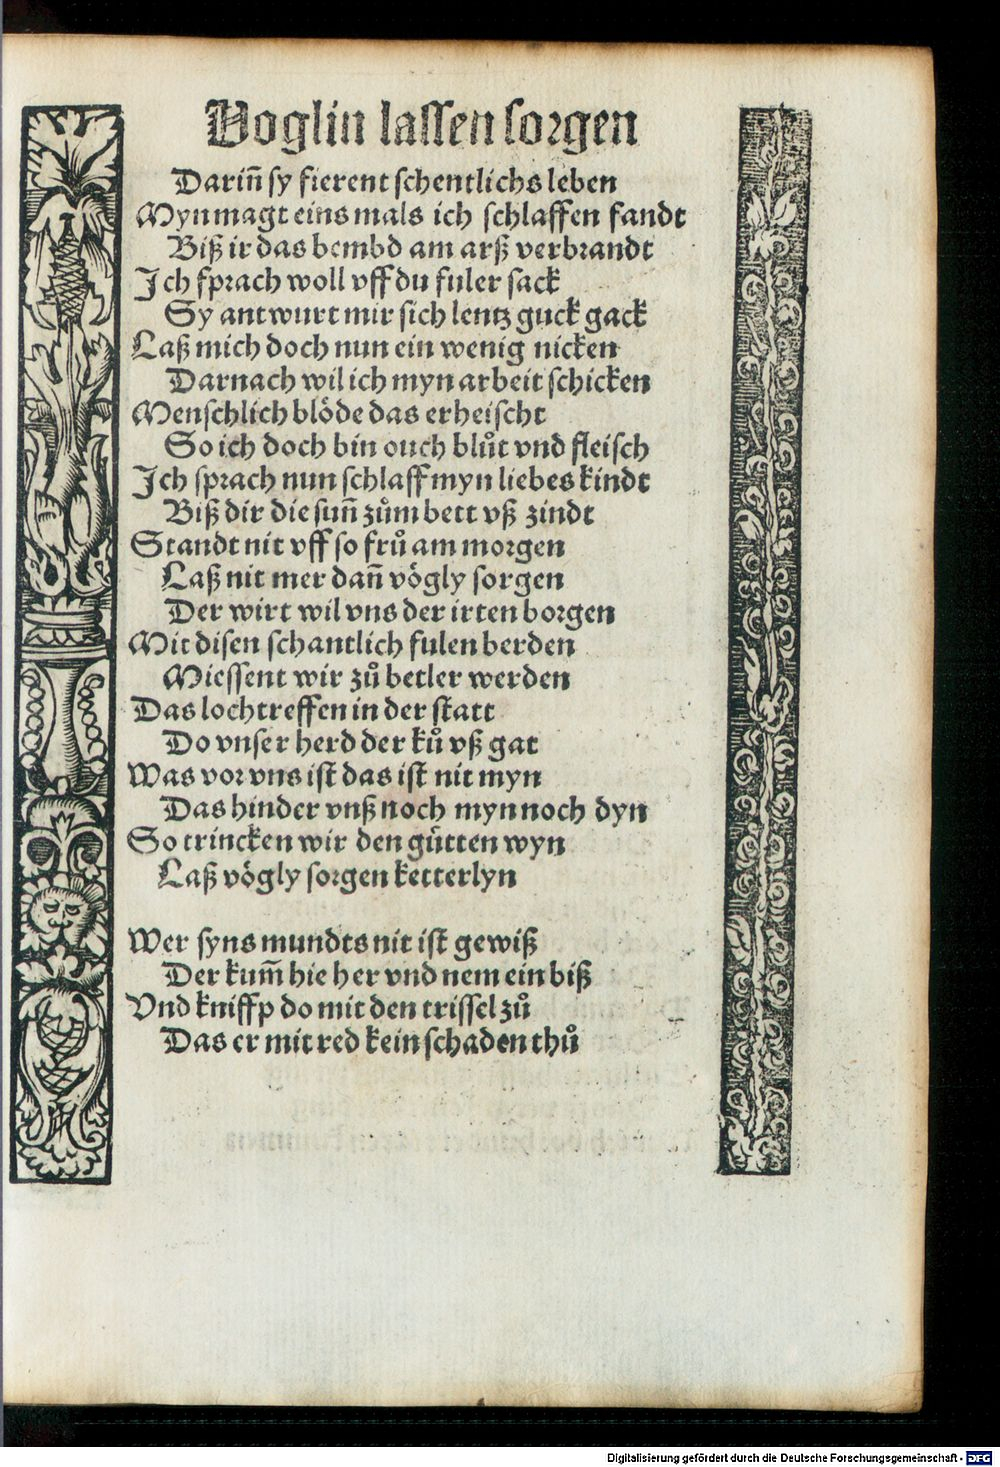 Voglin lassen sorgen
Dariñ sy fierent schentlichs leben
Myn magt eins mals ich schlaffen fandt
Biß ir das hembd am arß verbrandt
Ich sprach woll vff du fuler sack
Sy antwurt mir sich lentz guck gack
Laß mich doch nun ein wenig nicken
Darnach wil ich myn arbeit schicken
Menschlich blöde das erheischt
So ich doch bin ouch blůt vnd fleisch
Ich sprach nun schlaff myn liebes kindt
Biß dir die suñ zům bett vß zindt
Standt nit vff so frů am morgen
Laß nit mer dañ vögly sorgen
Der wirt wil vns der irten borgen
Mit disen schantlich fulen berden
Miessent wir zů betler werden
Das lochtreffen in der statt
Do vnser herd der ků vß gat
Was vor vns ist das ist nit myn
Das hinder vnß noch myn noch dyn
So trincken wir den gůtten wyn
Laß vögly sorgen ketterlyn
Wer syns mundts nit ist gewiß
Der kum̃ hie her vnd nem ein biß
Vnd kniffp do mit den trissel zů
Das er mit red kein schaden thů
Digitalisierung gefördert durch die Deutsche Forschungsgemeinschaft - DFG